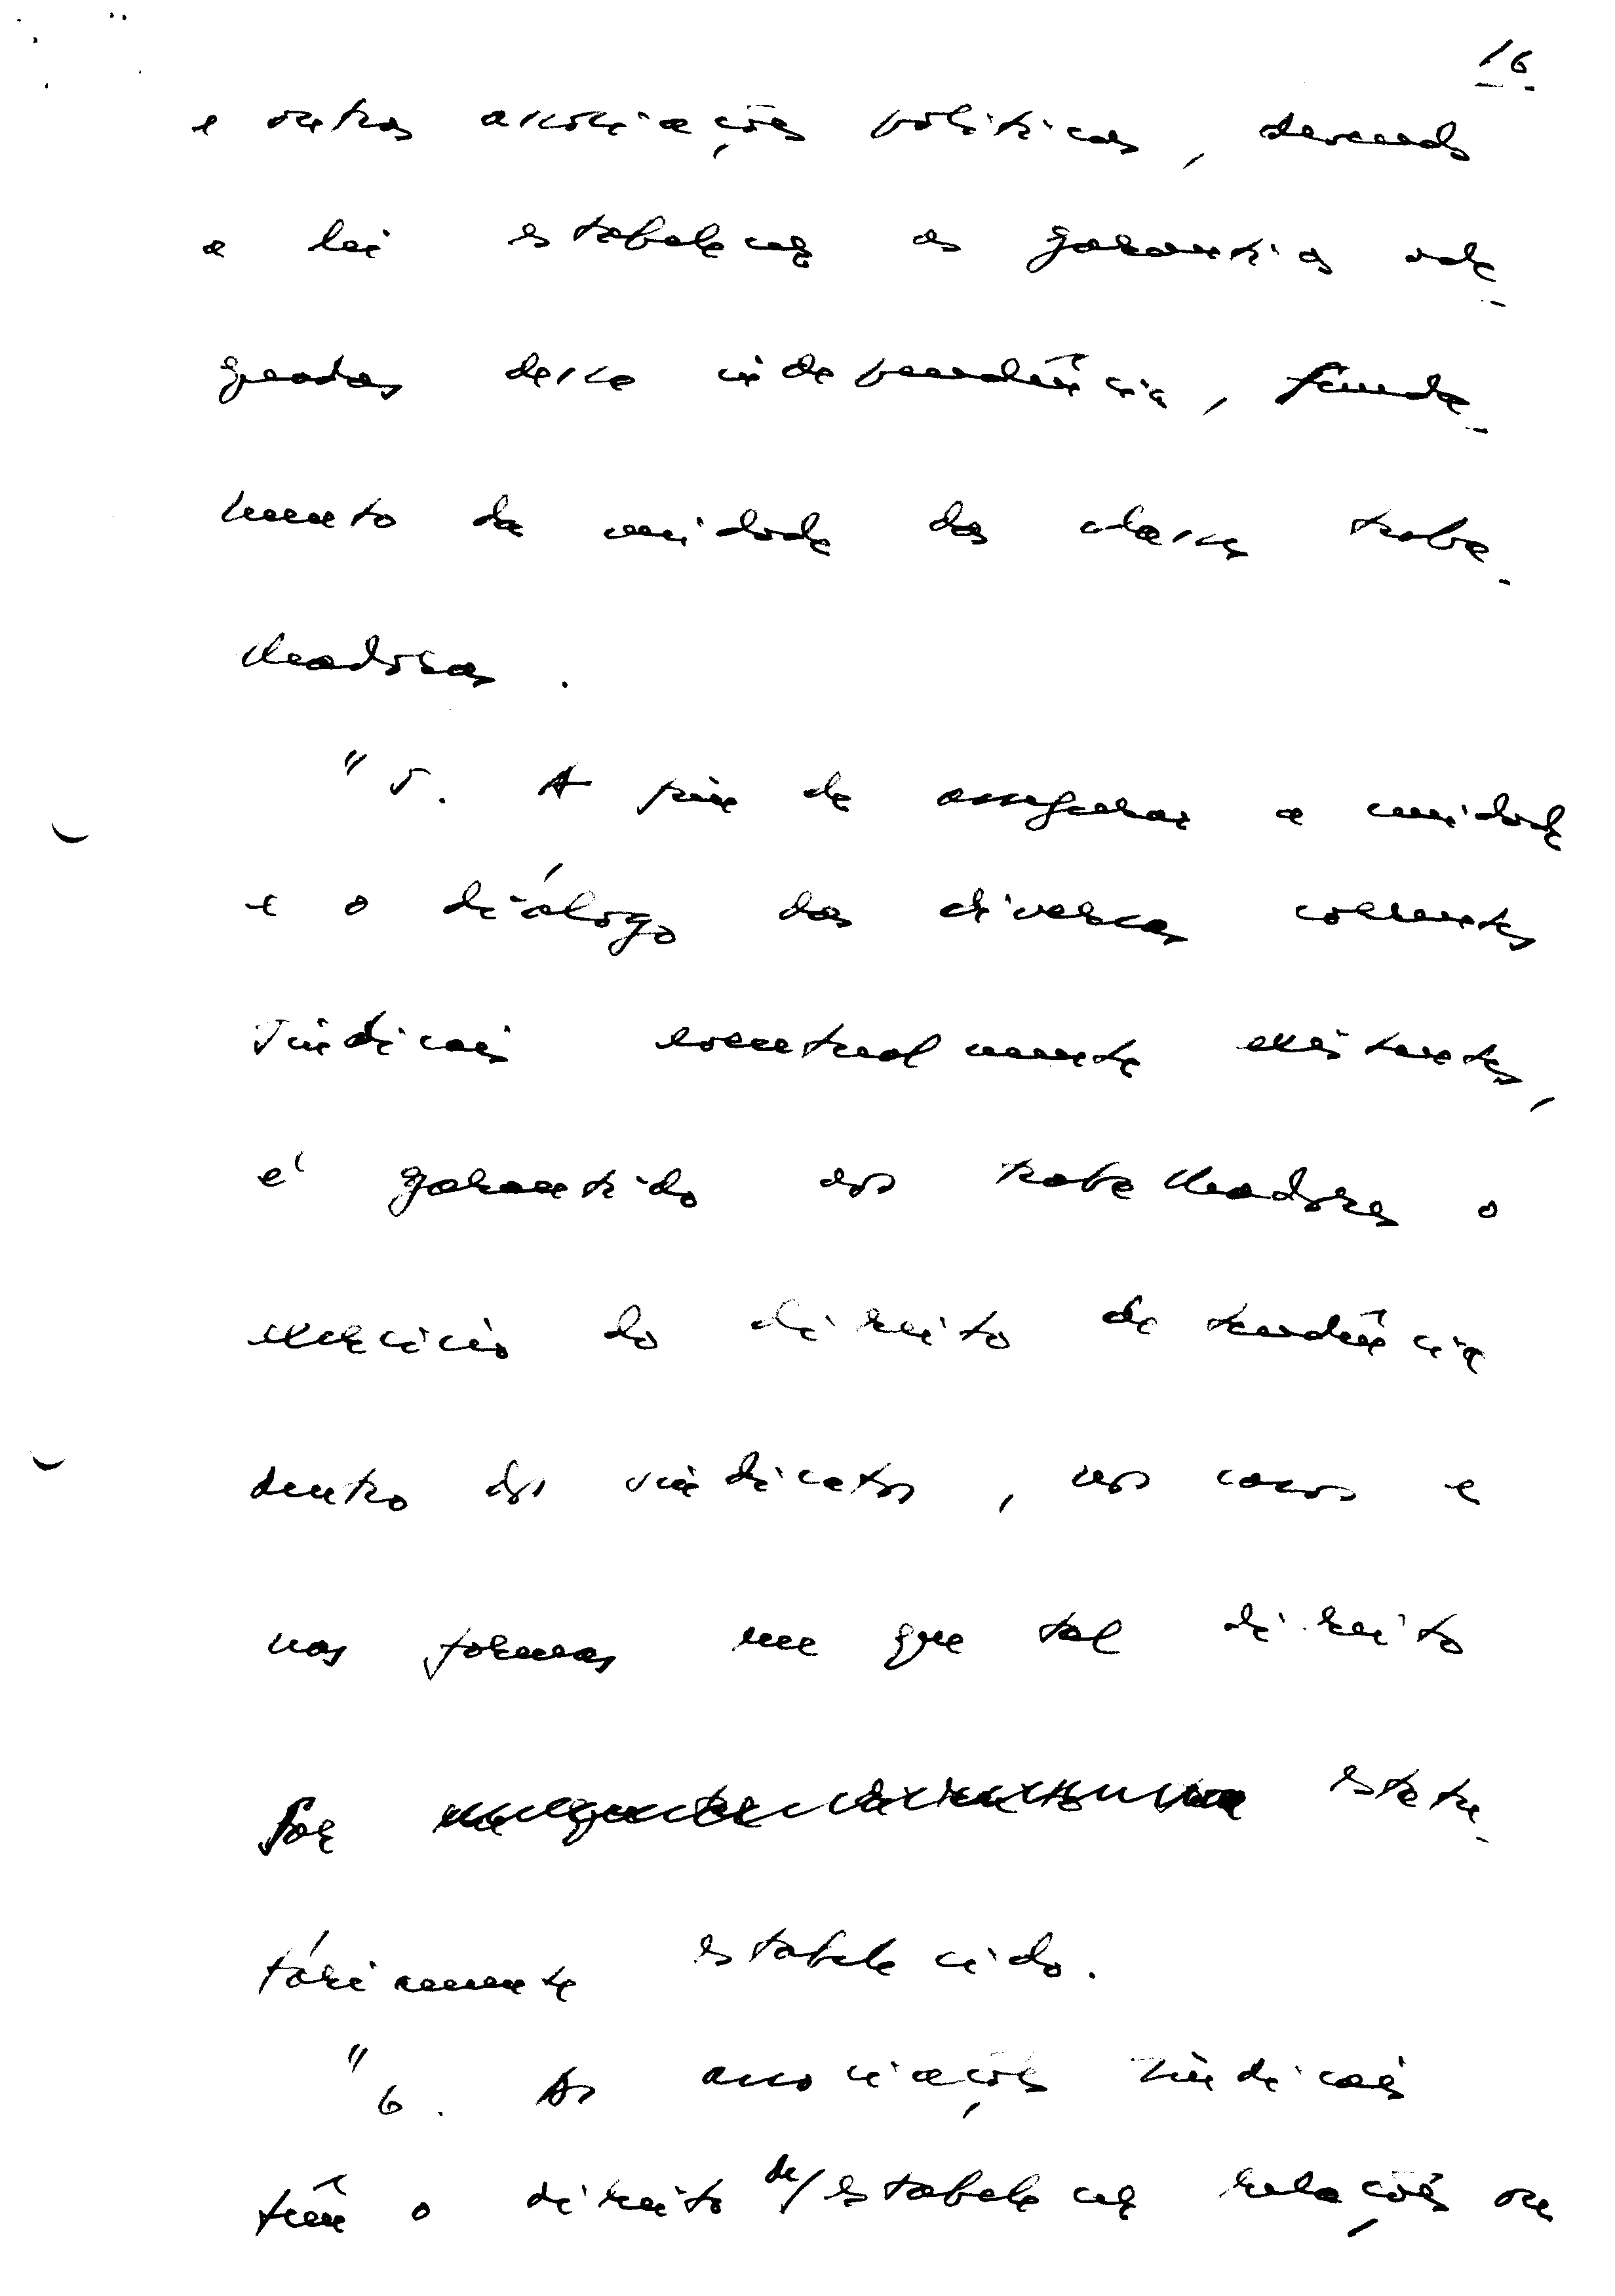 16
e outras associações políticas, devendo
a lei estabelecer as garantias ade-
quadas dessa independência, funda-
mento da unidade das classes traba-
lhadoras.
"5. A fim de assegurar a unidade
e o diálogo das diversas correntes
sindicais eventualmente existentes,
é garantido aos trabalhadores o
exercício do direito de tendência
dentro dos sindicatos, nos casos e
nas formas em que tal direito
for estatu-
tàriamente estabelecido.
"6. As associações sindicais
têm o direito de/estabelecer relações ou